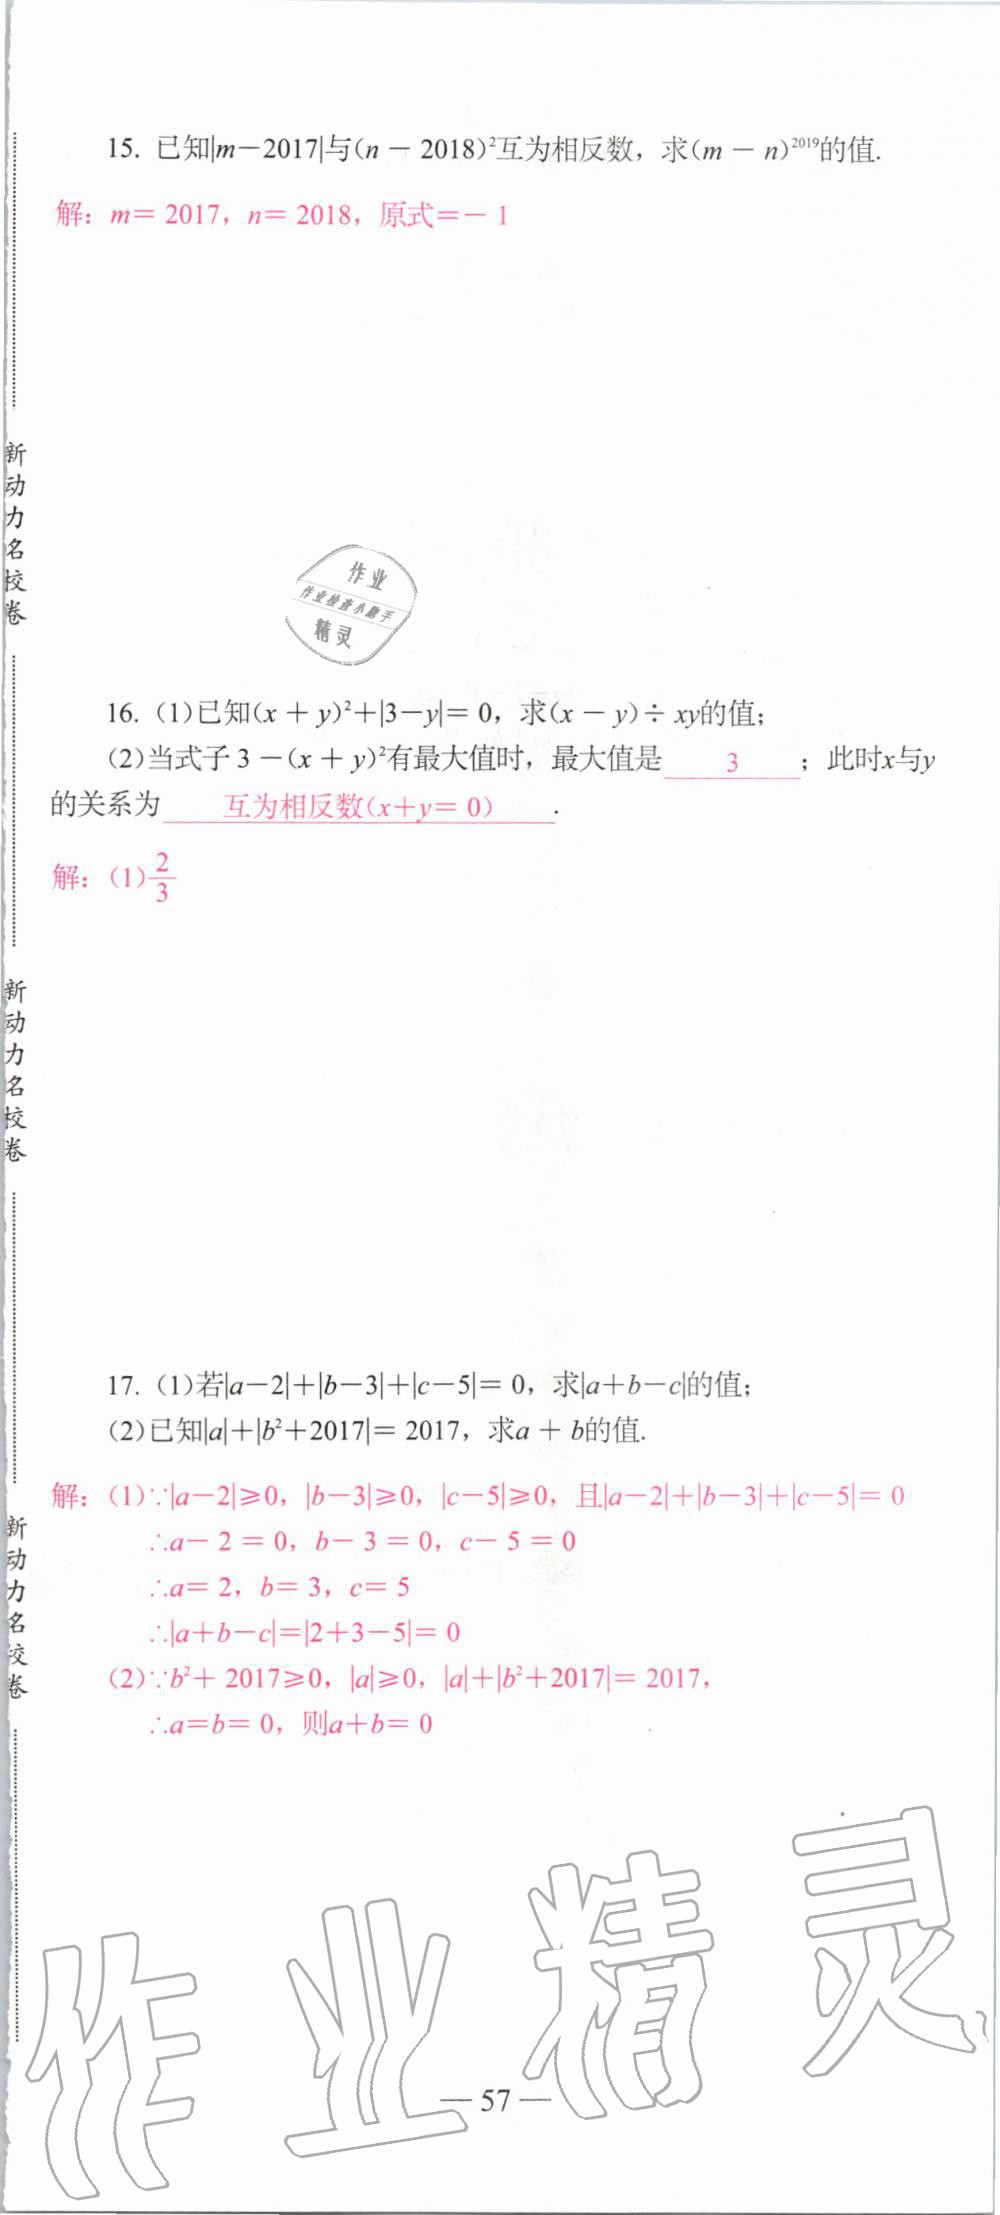 15. 已知|m－2017|与(n － 2018)²互为相反数，求(m － n)²⁰¹⁹的值.
解：m＝ 2017，n＝ 2018，原式＝－ 1
新动力名校卷
作业
作业检查小助手
精灵
16. (1)已知(x ＋ y)²＋|3－y|＝ 0，求(x － y)÷ xy的值；
(2)当式子 3 －(x ＋ y)²有最大值时，最大值是 3 ；此时x与y
的关系为 互为相反数(x＋y＝ 0) .
解：(1)2/3
新动力名校卷
17. (1)若|a－2|＋|b－3|＋|c－5|＝ 0，求|a＋b－c|的值；
(2)已知|a|＋|b²＋2017|＝ 2017，求a ＋ b的值.
解：(1)∵|a－2|≥0，|b－3|≥0，|c－5|≥0，且|a－2|＋|b－3|＋|c－5|＝ 0
∴a－ 2 ＝ 0，b－ 3 ＝ 0，c－ 5 ＝ 0
∴a＝ 2，b＝ 3，c＝ 5
∴|a＋b－c|＝|2＋3－5|＝ 0
(2)∵b²＋ 2017≥0，|a|≥0，|a|＋|b²＋2017|＝ 2017，
∴a＝b＝ 0，则a＋b＝ 0
新动力名校卷
作业精灵
— 57 —